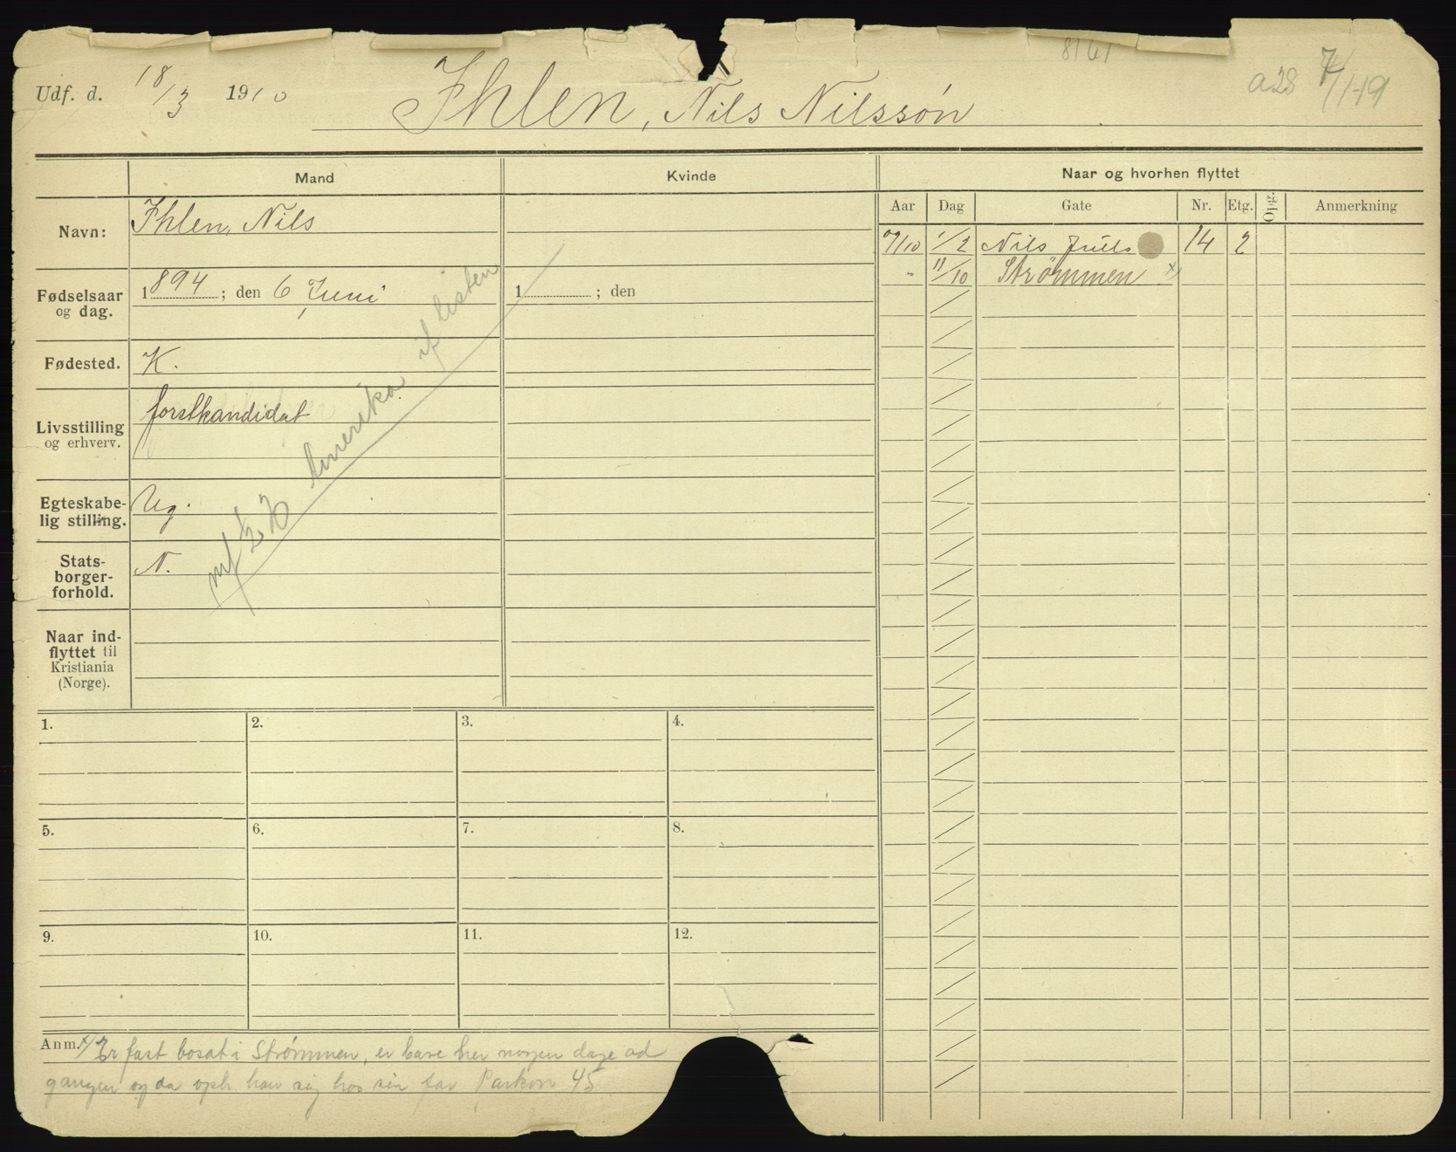 8161
Udf. d. 18/3 1910
Ihlen, Nils Nilssøn
a28 7/1-19
Mand
Kvinde
Naar og hvorhen flyttet
Aar Dag Gate Nr. Etg. Opg. Anmerkning
Navn: Ihlen, Nils
/10 1/2 Nils Juels 14 2
" 11/10 Strømmen x)
Fødselsaar og dag. 1894; den 6 Juni
1 ; den
Fødested. K.
Livsstilling og erhverv. forstkandidat
Egteskabelig stilling. Ug.
Statsborgerforhold. N.
Naar indflyttet til Kristiania (Norge).
Amerika if listen
1. 2. 3. 4.
5. 6. 7. 8.
9. 10. 11. 12.
Anm. x) Er fast bosat i Strømmen, er bare her nogen dage ad
gangen og da oph. han sig hos sin far Parkvn 45